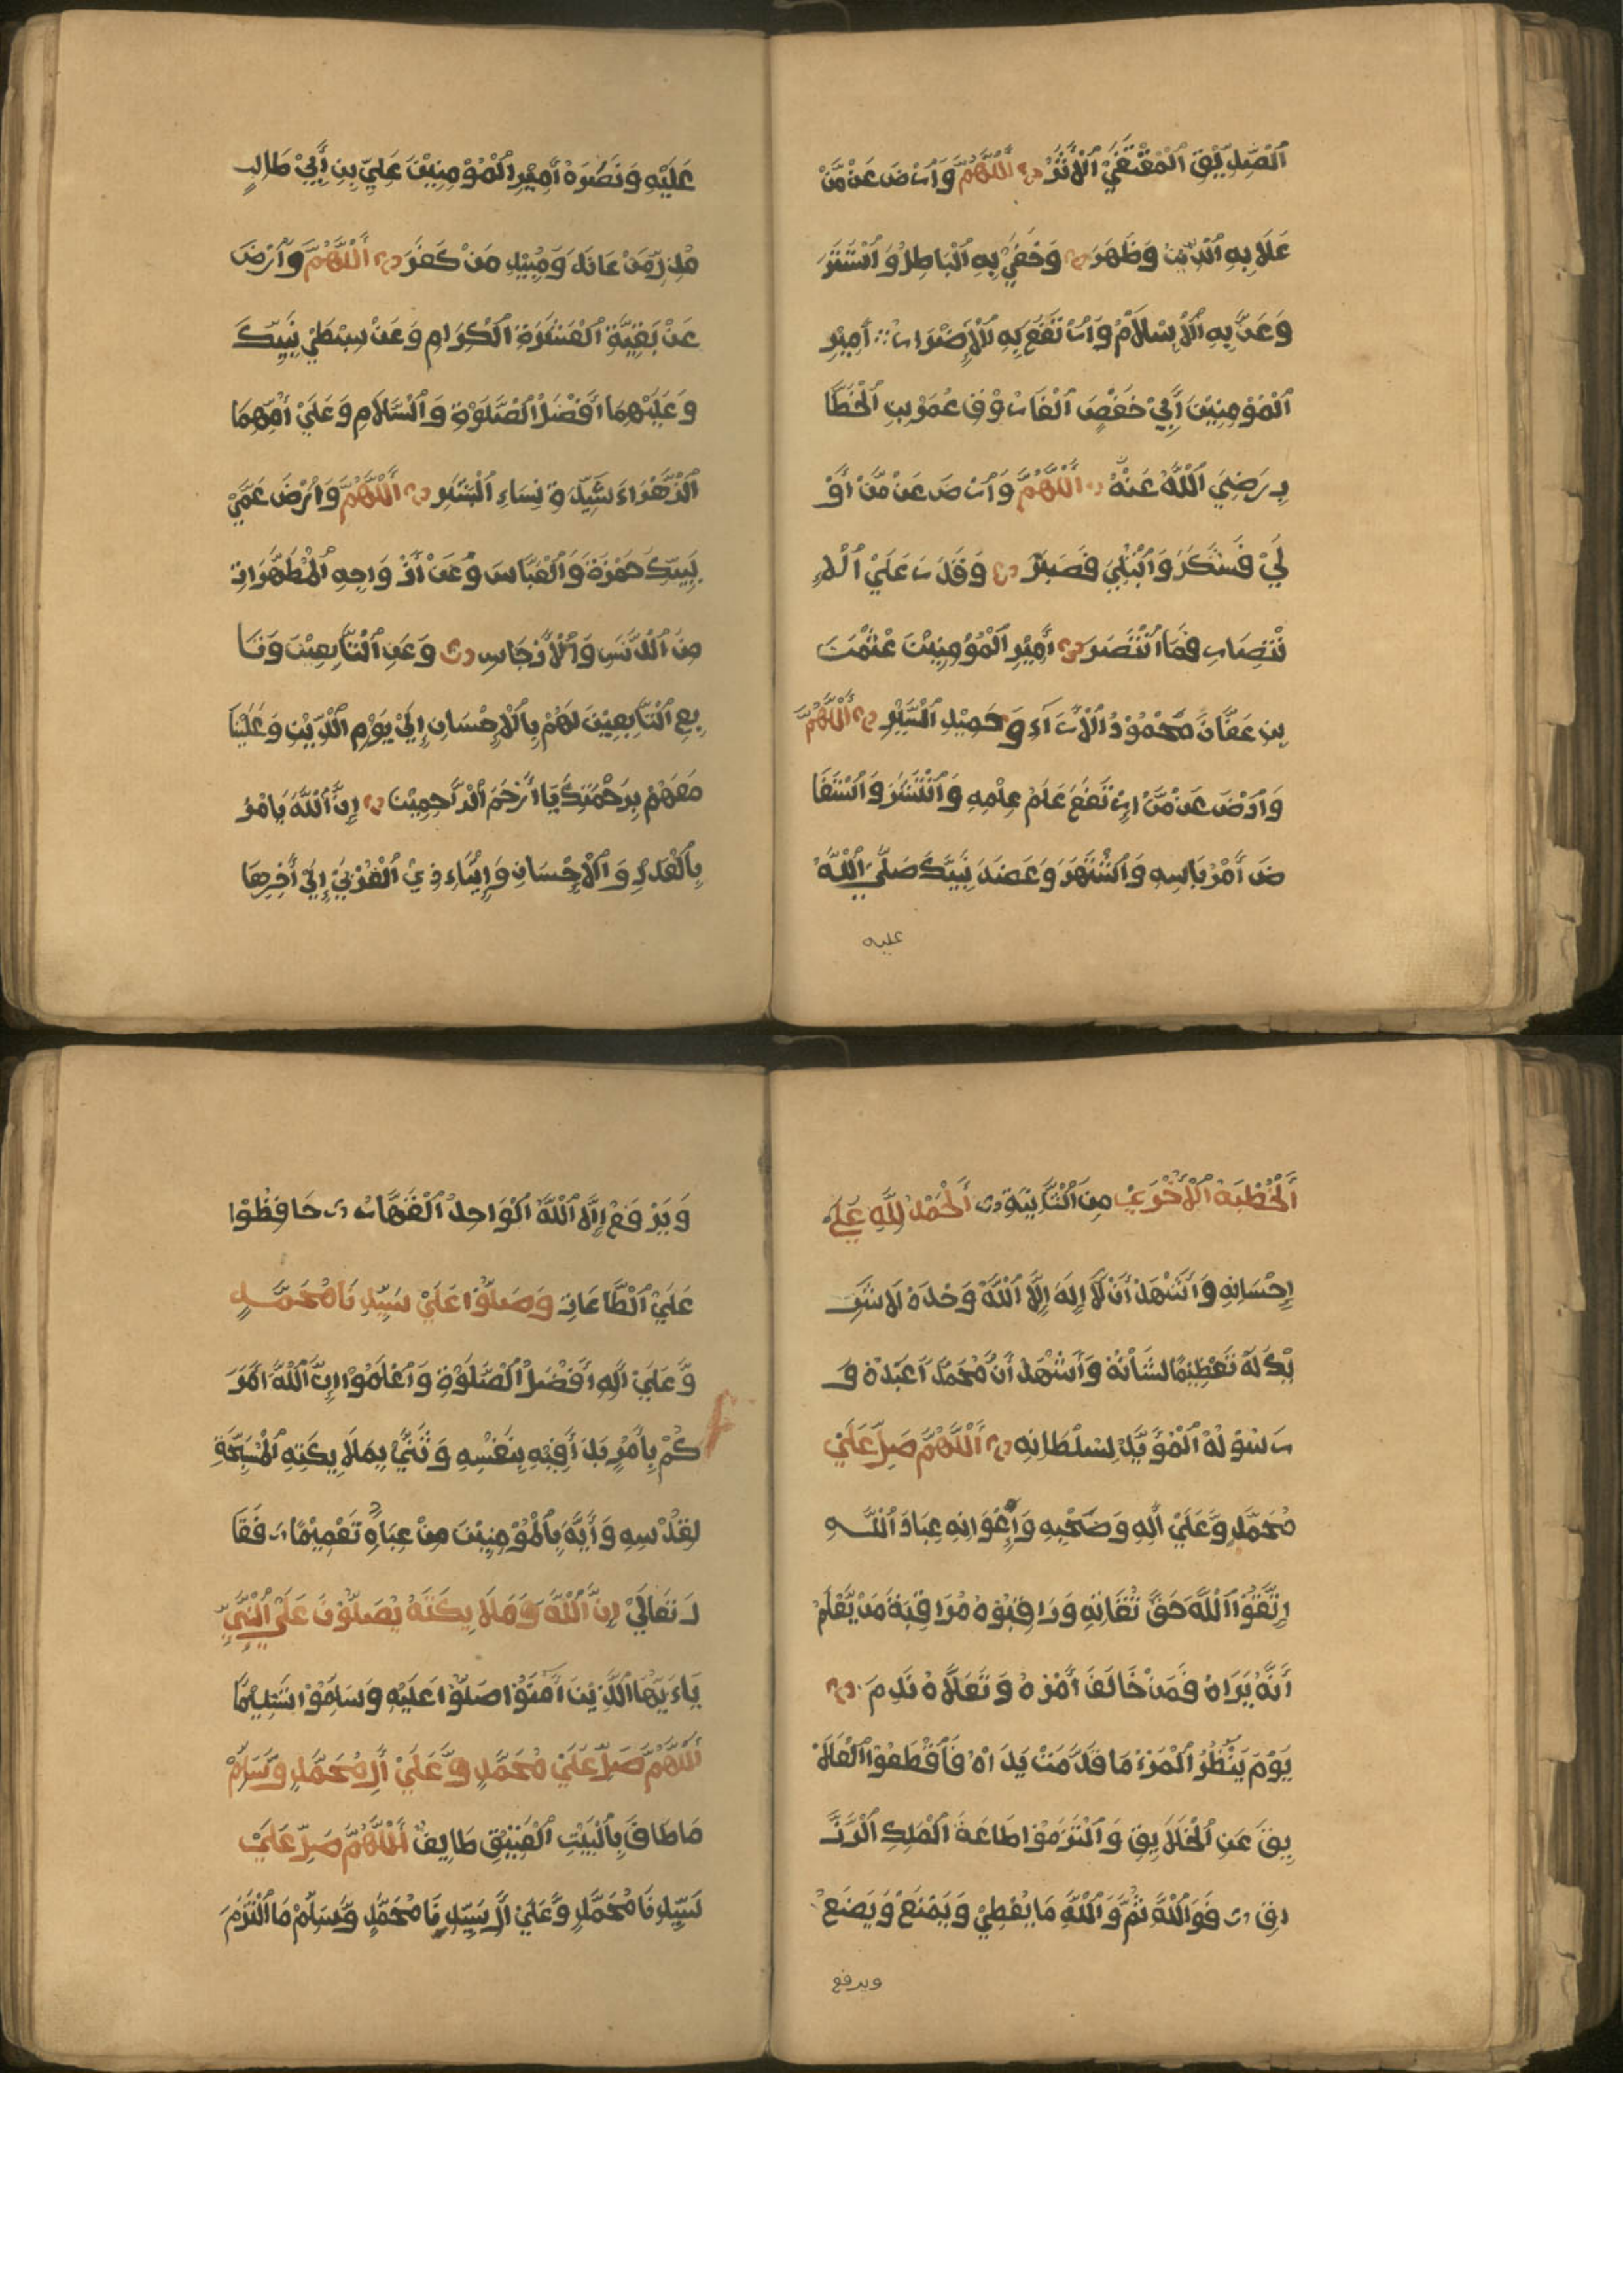 اَلصِّدِّيْقِ اَلْمُقْتَفِيْ اَلْأَثَرْ اَللَّهُمَّ وَارْضَ عَنْ مَّنْ
عَلَا بِهِ اَلدِّيْنُ وَظَهَرَ وَخُفِيْ بِهِ اَلْبَاطِلُ وَاسْتَتَرَ
وَعَزَّ بِهِ اَلْاِسْلَامُ وَارْتَفَعَ بِهِ اَلْاِضْرَارْ أَمِيْرِ
اَلْمُؤْمِنِيْنَ أَبِيْ حَفْصٍ اَلْفَارُوْقِ عُمَرَ بْنِ اَلْخَطَّا
بِ رَضِيَ اَللَّهُ عَنْهُ اَللَّهُمَّ وَارْضَ عَنْ مَّنْ أُوْ
لَيْ فَشَكَرَ وَابْتُلِيَ فَصَبَرَ وَقَدَرَ عَلَيْ اَلْاِ
نْتِصَارِ فَمَا انْتَصَرَ أَمِيْرِ اَلْمُؤْمِنِيْنَ عُثْمٰنَ
بْنِ عَفَّانَ مَحْمُوْدُ اَلْأَرَآءِ وَحَمِيْدِ اَلْسِّيَرِ اَللَّهُمَّ
وَارْضَ عَنْ مَّنْ اِرْتَفَعَ عَلَمُ عِلْمِهِ وَانْتَشَرَ وَاسْتَفَا
ضَ أَمْرُ بَاسِهِ وَاشْتَهَرَ وَعَضَدَ نَبِيَّكَ صَلَّى اللَّهُ
عليه
عَلَيْهِ وَنَصَرَهُ أَمِيْرِ اَلْمُؤْمِنِيْنَ عَلِيِّ بْنِ أَبِيْ طَالِبٍ
مُذِلِّ مَنْ عَانَدَ وَمُبِيْدِ مَنْ كَفَرَ اَللَّهُمَّ وَارْضَ
عَنْ بَقِيَّةِ اَلْعَشَرَةِ اَلْكِرَامِ وَعَنْ سِبْطَيْ نَبِيِّكَ
وَعَلَيْهِمَا أَفْضَلُ اَلصَّلَوٰةِ وَالسَّلَامِ وَعَلَيْ أُمِّهِمَا
اَلزَّهْرَاءَ سَيِّدَةِ نِسَاءِ اَلْبَشَرِ اَللَّهُمَّ وَارْضَ عَمَّيْ
نَبِيِّكَ حَمْزَةَ وَالْعَبَّاسَ وَعَنْ أَزْوَاجِهِ اَلْمُطَهَّرَاتِ
مِنَ اَلدَّنَسِ وَالْأَرْجَاسِ وَعَنِ اَلتَّابِعِيْنَ وَتَا
بِعِ اَلتَّابِعِيْنَ لَهُمْ بِالْاِحْسَانِ إِلَيْ يَوْمِ اَلدِّيْنِ وَعَلَيْنَا
مَعَهُمْ بِرَحْمَتِكَ يَا أَرْحَمَ اَلرَّاحِمِيْنَ إِنَّ اللَّهَ يَامُرُ
بِالْعَدْلِ وَالْاِحْسَانِ وَإِيْتَاءِ ذِيْ اَلْقُرْبَيْ إِلَيْ أَخِرِهَا
اَلْخُطْبَةُ اَلْأُخْرَيْ مِنَ اَلثَّانِيَةِ اَلْحَمْدُ لِلَّهِ عَلَي
إِحْسَانِهِ وَأَشْهَدُ أَنْ لَّا إِلٰهَ إِلَّا اللَّهُ وَحْدَهُ لَا شَرِ
يْكَ لَهُ تَعْظِيْمًا لِشَأْنِهِ وَأَشْهَدُ أَنَّ مُحَمَّدًا عَبْدُهُ وَ
رَسُوْلُهُ اَلْمُؤَيَّدُ لِسُلْطَانِهِ اَللَّهُمَّ صَلِّ عَلَيْ
مُحَمَّدٍ وَّعَلَيْ أٰلِهِ وَصَحْبِهِ وَإِخْوَانِهِ عِبَادَ اللَّهِ
اِتَّقُوْا اَللَّهَ حَقَّ تُقَاتِهِ وَرَاقِبُوْهُ مُرَاقِبَةَ مَنْ يَّعْلَمُ
أَنَّهُ يَرَاهُ فَمَنْ خَالَفَ أَمْرَهُ وَتَعَدَّاهُ نَدِمَ
يَوْمَ يَنْظُرُ اَلْمَرْءُ مَا قَدَّمَتْ يَدَاهُ فَاقْطَعُوْا اَلْعَلَا
يِقَ عَنِ اَلْخَلَايِقِ وَالْتَزِمُوْا طَاعَةَ اَلْمَلِكِ اَلرَّزَّ
اقِ فَوَاللَّهِ ثُمَّ وَاللَّهِ مَا يُعْطِيْ وَيَمْنَعُ وَيَضَعُ
ويرفع
وَيَرْفَعُ إِلَّا اللَّهُ اَلْوَاحِدُ اَلْقَهَّارُ حَافِظُوْا
عَلَيْ اَلطَّاعَاتِ وَصَلُّوْا عَلَيْ سَيِّدِنَا مُحَمَّدٍ
وَّعَلَيْ أٰلِهِ أَفْضَلُ اَلصَّلَوٰةِ وَاعْلَمُوْا إِنَّ اللَّهَ أَمَرَ
كُمْ بِأَمْرٍ بَدَأَ فِيْهِ بِنَفْسِهِ وَثَنَّيْ بِمَلَايِكَتِهِ اَلْمُسَبِّحَةِ
لِقُدْسِهِ وَأَيَّهَ بِالْمُؤْمِنِيْنَ مِنْ عِبَادِهِ تَعْمِيْمًا فَقَا
لَ تَعَالَيْ إِنَّ اللَّهَ وَمَلَايِكَتَهُ يُصَلُّوْنَ عَلَيْ اَلنَّبِيِّ
يَاءَيُّهَا اَلَّذِيْنَ أٰمَنُوْا صَلُّوْا عَلَيْهِ وَسَلِّمُوْا تَسْلِيْمًا
اَللَّهُمَّ صَلِّ عَلَيْ مُحَمَّدٍ وَّعَلَيْ أٰلِ مُحَمَّدٍ وَّسَلِّمْ
مَا طَافَ بِالْبَيْتِ اَلْعَتِيْقِ طَايِفٌ اَللَّهُمَّ صَلِّ عَلَيْ
سَيِّدِنَا مُحَمَّدٍ وَّعَلَيْ أٰلِ سَيِّدِنَا مُحَمَّدٍ وَّسَلِّمْ مَا الْتَزَمَ